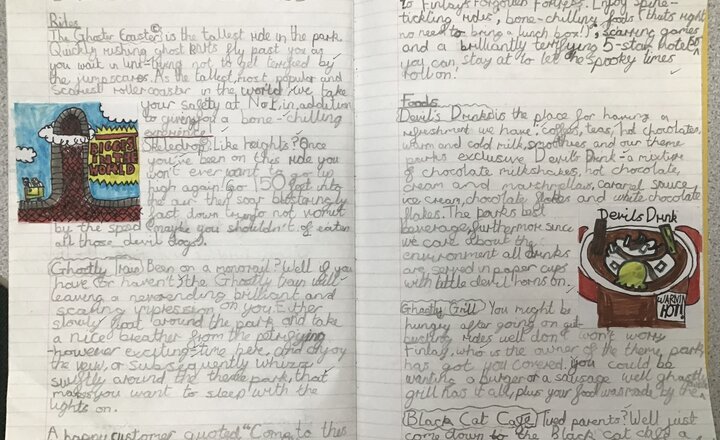 Rides
The Ghoster Coaster© is the tallest ride in the park.
Quickly rushing ghost karts fly past you as
you wait in line trying not to get terrified by
the jumpscares. As the tallest, most popular and
scariest rollercoaster in the world we take
your safety at No.1, in addition
to giving you a bone-chilling
experience!
Skeledrop: Like heights? Once
you've been on this ride you
won't ever want to go up
high again! Go 150 foot into
the air then soar blisteringly
fast down trying to not vomit
by the speed (maybe you shouldn't of eaten
all those devil dogs).
BIGGEST
IN THE
WORLD
Ghostly Train Been on a monorail? Well if you
have or haven't, the Ghostly train will
leaving a neverending brilliant and
scaring impression on you. Either
slowly float around the park and take
a nice breather from the petrifying
-however exciting- time here, and enjoy
the view, or subsequently whizz
swiftly around the theme park, that
makes you want to sleep with the
lights on.
A happy customer quoted "Come to this
to Finlay's Forgotten Forfeits. Enjoy spine-
tickling rides, bone-chilling foods (thats right
no need to bring a lunch box!), scarring games
and a brilliantly terrifying 5-star hotel
you can stay at to let the spooky times
roll on!
Foods
Devil's Drinks is the place for having a
refreshment we have: coffees, teas, hot chocolates,
warm and cold milk, smoothies and our theme
parks exclusive Devil's Drink - a mixture
of chocolate milkshakes, hot chocolate,
cream and marshmallows, caramel sauce
ice cream, chocolate flakes and white chocolate
flakes. The parks best
beverage, furthermore since
we care about the
environment all drinks
are served in paper cups
with little devil horns on.
Devils Drink
WARNIN
HOT!
Ghastly Grill You might be
hungry after going on gut-
busting rides well don't worry
Finlay, who is the owner of the theme park
has got you covered. You could be
wanting a burger or a sausage well ghastly
grill has it all, plus your food was made by the
Black Cat Cafe Tired parents? Well just
come down to the Black cat